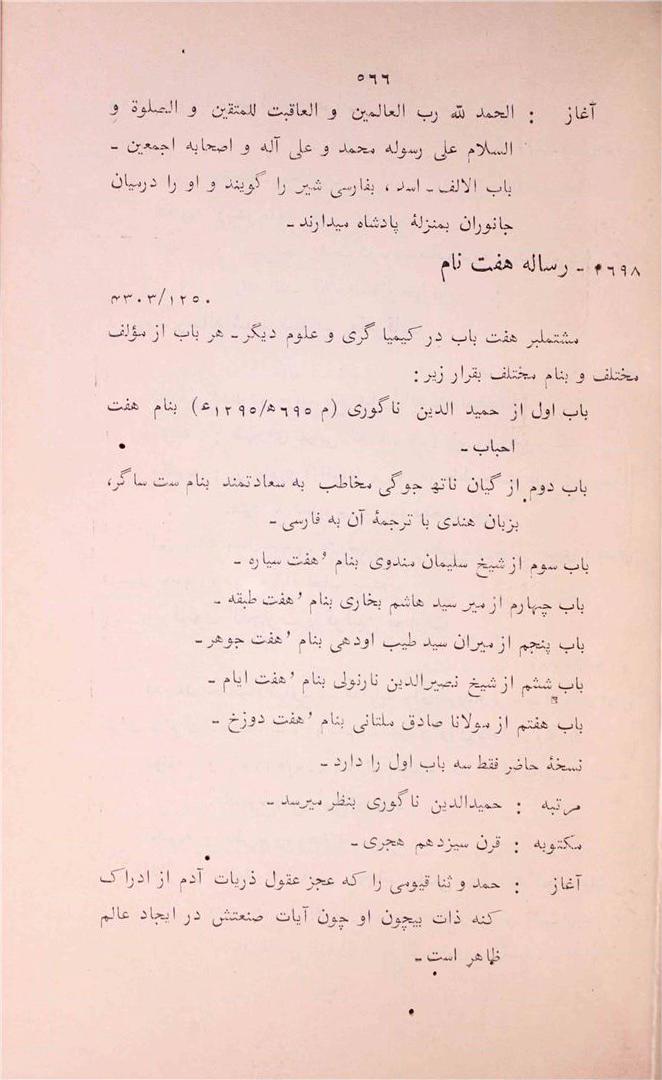 ۵۶۶
آغاز : الحمد لله رب العالمین و العاقبت للمتقین و الصلوة و
السلام علی رسوله محمد و علی آله و اصحابه اجمعین ـ
باب الالف ـ اسد ، بفارسی شیر را گویند و او را درمیان
جانوران بمنزلۀ پادشاه میدارند ـ
۴۶۹۸ ـ رساله هفت نام
۴۳۰۳/۱۲۵۰
مشتملبر هفت باب در کیمیا گری و علوم دیگر ـ هر باب از مؤلف
مختلف و بنام مختلف بقرار زیر :
باب اول از حمید الدین ناگوری (م ۶۹۵ھ/۱۲۹۵ع) بنام هفت
احباب ـ
باب دوم از گیان ناتھ جوگی مخاطب به سعادتمند بنام ست ساگر،
بزبان هندی با ترجمۀ آن به فارسی ـ
باب سوم از شیخ سلیمان مندوی بنام ’هفت سیاره ـ
باب چهارم از میر سید هاشم بخاری بنام ’هفت طبقه ـ
باب پنجم از میران سید طیب اودهی بنام ’هفت جوهر ـ
باب ششم از شیخ نصیرالدین نارنولی بنام ’هفت ایام ـ
باب هفتم از مولانا صادق ملتانی بنام ’هفت دوزخ ـ
نسخۀ حاضر فقط سه باب اول را دارد ـ
مرتبه : حمیدالدین ناگوری بنظر میرسد ـ
مکتوبه : قرن سیزدهم هجری ـ
آغاز : حمد و ثنا قیومی را که عجز عقول ذریات آدم از ادراک
کنه ذات بیچون او چون آیات صنعتش در ایجاد عالم
ظاهر است ـ